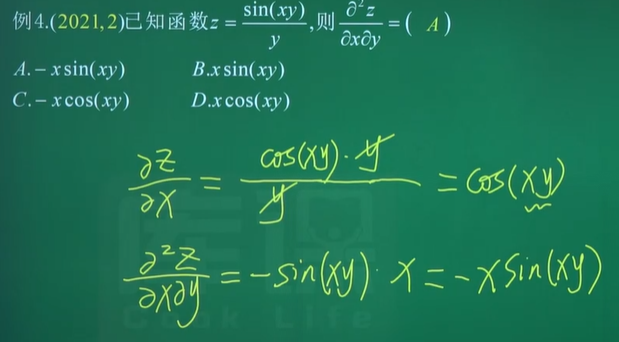 例4.(2021,2)已知函数z = sin(xy)/y ,则 ∂²z/∂x∂y = ( A )
A. − x sin(xy) B. x sin(xy)
C. − x cos(xy) D. x cos(xy)
∂z/∂x = cos(xy)·y / y = cos(xy)
∂²z/∂x∂y = −sin(xy)· x = −x sin(xy)
Cook Life